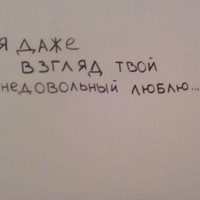 Я ДАЖЕ
ВЗГЛЯД ТВОЙ
НЕДОВОЛЬНЫЙ ЛЮБЛЮ...